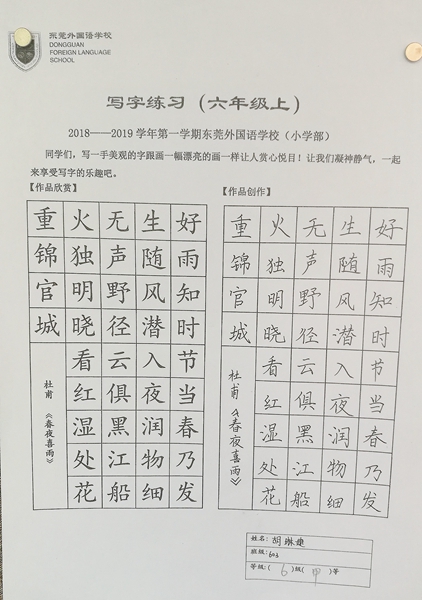 东莞外国语学校
DONGGUAN
FOREIGN LANGUAGE
SCHOOL
写字练习（六年级上）
2018——2019 学年第一学期东莞外国语学校（小学部）
同学们，写一手美观的字跟画一幅漂亮的画一样让人赏心悦目！让我们凝神静气，一起
来享受写字的乐趣吧。
【作品欣赏】
好雨知时节当春乃发
生随风潜入夜润物细
无声野径云俱黑江船
火独明晓看红湿处花
重锦官城
杜甫《春夜喜雨》
【作品创作】
好雨知时节当春乃发
生随风潜入夜润物细
无声野径云俱黑江船
火独明晓看红湿处花
重锦官城
杜甫《春夜喜雨》
姓名：胡琳
班级：603
等级：（6）级（甲）等